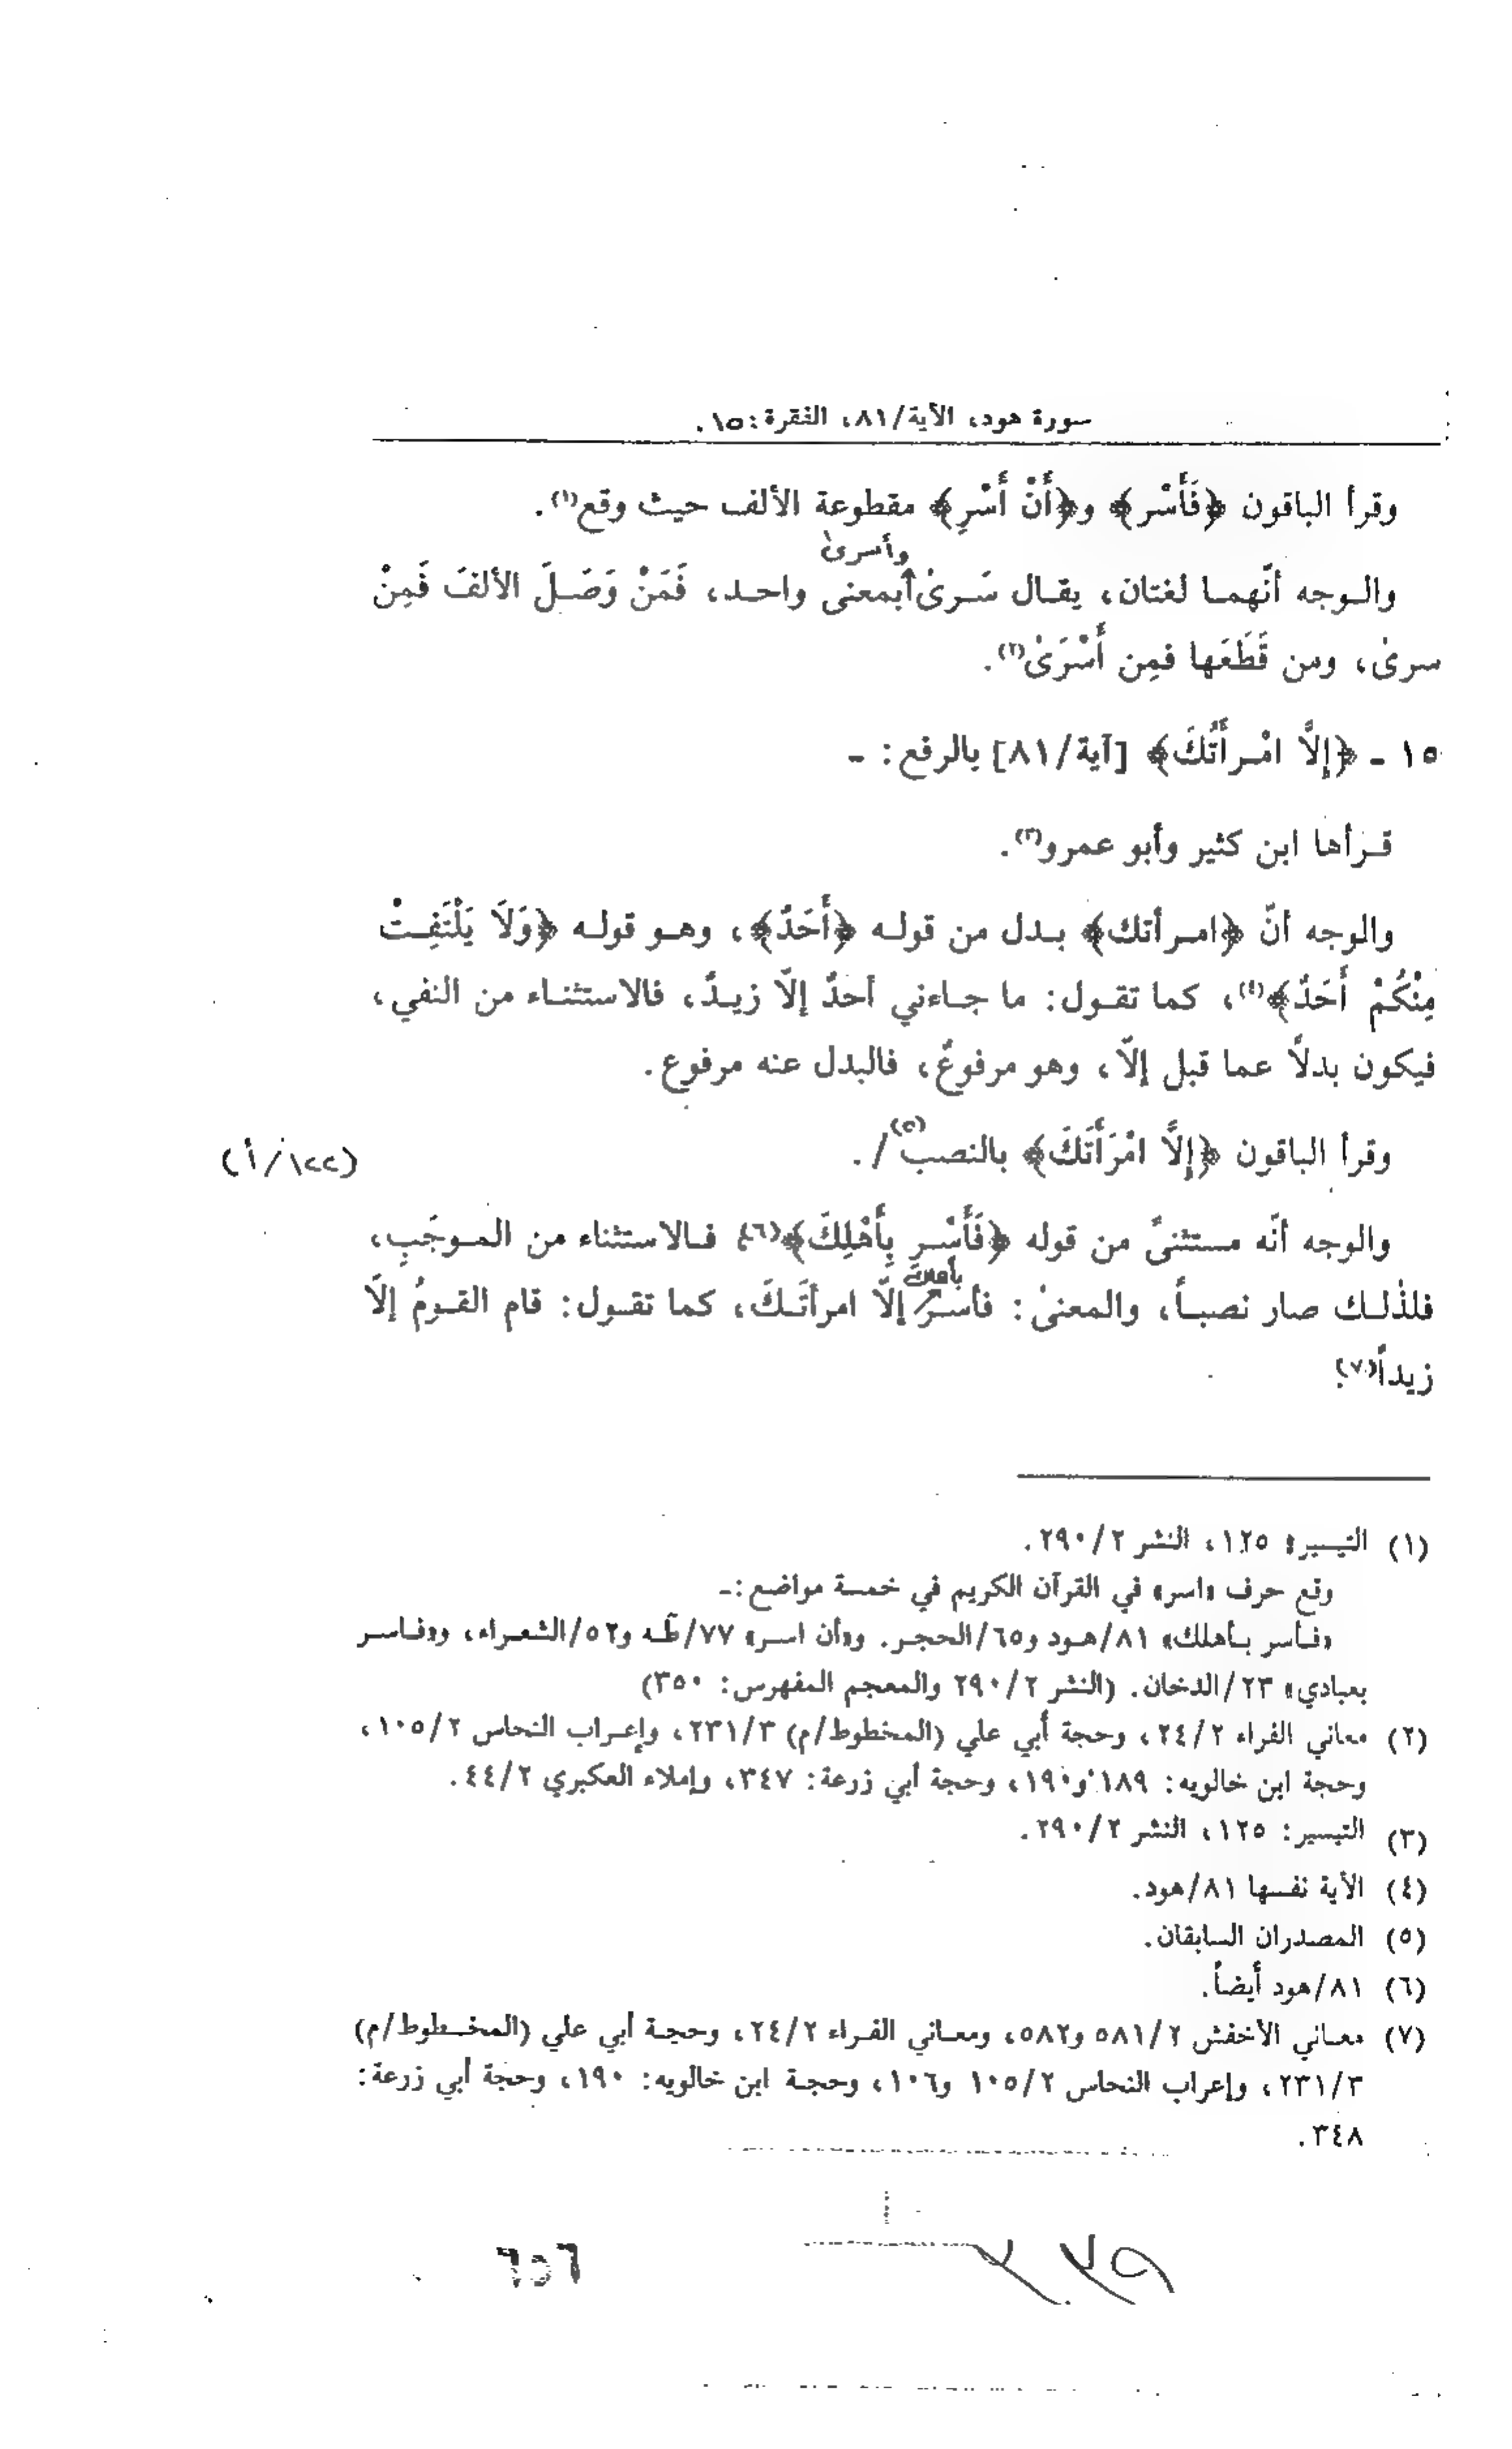 سورة هود، الآية/٨١، الفقرة: ١٥.
وقرأ الباقون ﴿فَأَسْر﴾ و﴿أَنْ أَسْرِ﴾ مقطوعة الألف حيث وقع(١).
وأسرىٰ
والوجه أنّهما لغتان، يقال سَرىٰ بمعنى واحد، فَمَنْ وَصَلَ الألفَ فَمِنْ
سرىٰ، ومن قَطَعَها فمِن أَسْرَىٰ(٢).
١٥ ـ ﴿إلَّا امْرأَتُكَ﴾ [آية/٨١] بالرفع: ـ
قرأها ابن كثير وأبو عمرو(٣).
والوجه أنّ ﴿امرأتك﴾ بدل من قوله ﴿أَحَدٌ﴾، وهو قوله ﴿وَلَا يَلْتَفِتْ
مِنْكُمْ أَحَدٌ﴾(٤)، كما تقول: ما جاءني أحدٌ إلّا زيدٌ، فالاستثناء من النفي،
فيكون بدلًا عما قبل إلّا، وهو مرفوعٌ، فالبدل عنه مرفوع.
وقرأ الباقون ﴿إلَّا امْرَأَتَكَ﴾ بالنصب(٥)/.
(١٢٢/أ)
والوجه أنّه مستثنىً من قوله ﴿فَأَسْرِ بِأَهْلِكَ﴾(٦) فالاستثناء من الموجَبِ،
بأهلك
فلذٰلك صار نصباً، والمعنىٰ: فأسر إلّا امرأتَكَ، كما تقول: قام القومُ إلّا
زيداً(٧).
(١) التيسير: ١٢٥، النشر ٢٩٠/٢.
وقع حرف «اسر» في القرآن الكريم في خمسة مواضع:ـ
«فأسر بأهلك» ٨١/هود و٦٥/الحجر. و«أن اسر» ٧٧/طٰه و٥٢/الشعراء، و«فاسر
بعبادي» ٢٣/الدخان. (النشر ٢٩٠/٢ والمعجم المفهرس: ٣٥٠)
(٢) معاني الفراء ٢٤/٢، وحجة أبي علي (المخطوط/م) ٢٣١/٣، وإعراب النحاس ١٠٥/٢،
وحجة ابن خالويه: ١٨٩ و١٩٠، وحجة أبي زرعة: ٣٤٧، وإملاء العكبري ٤٤/٢.
(٣) التيسير: ١٢٥، النشر ٢٩٠/٢.
(٤) الآية نفسها ٨١/هود.
(٥) المصدران السابقان.
(٦) ٨١/هود أيضاً.
(٧) معاني الأخفش ٥٨١/٢ و٥٨٢، ومعاني الفراء ٢٤/٢، وحجة أبي علي (المخطوط/م)
٢٣١/٣، وإعراب النحاس ١٠٥/٢ و١٠٦، وحجة ابن خالويه: ١٩٠، وحجة أبي زرعة:
٣٤٨.
٦٥٦